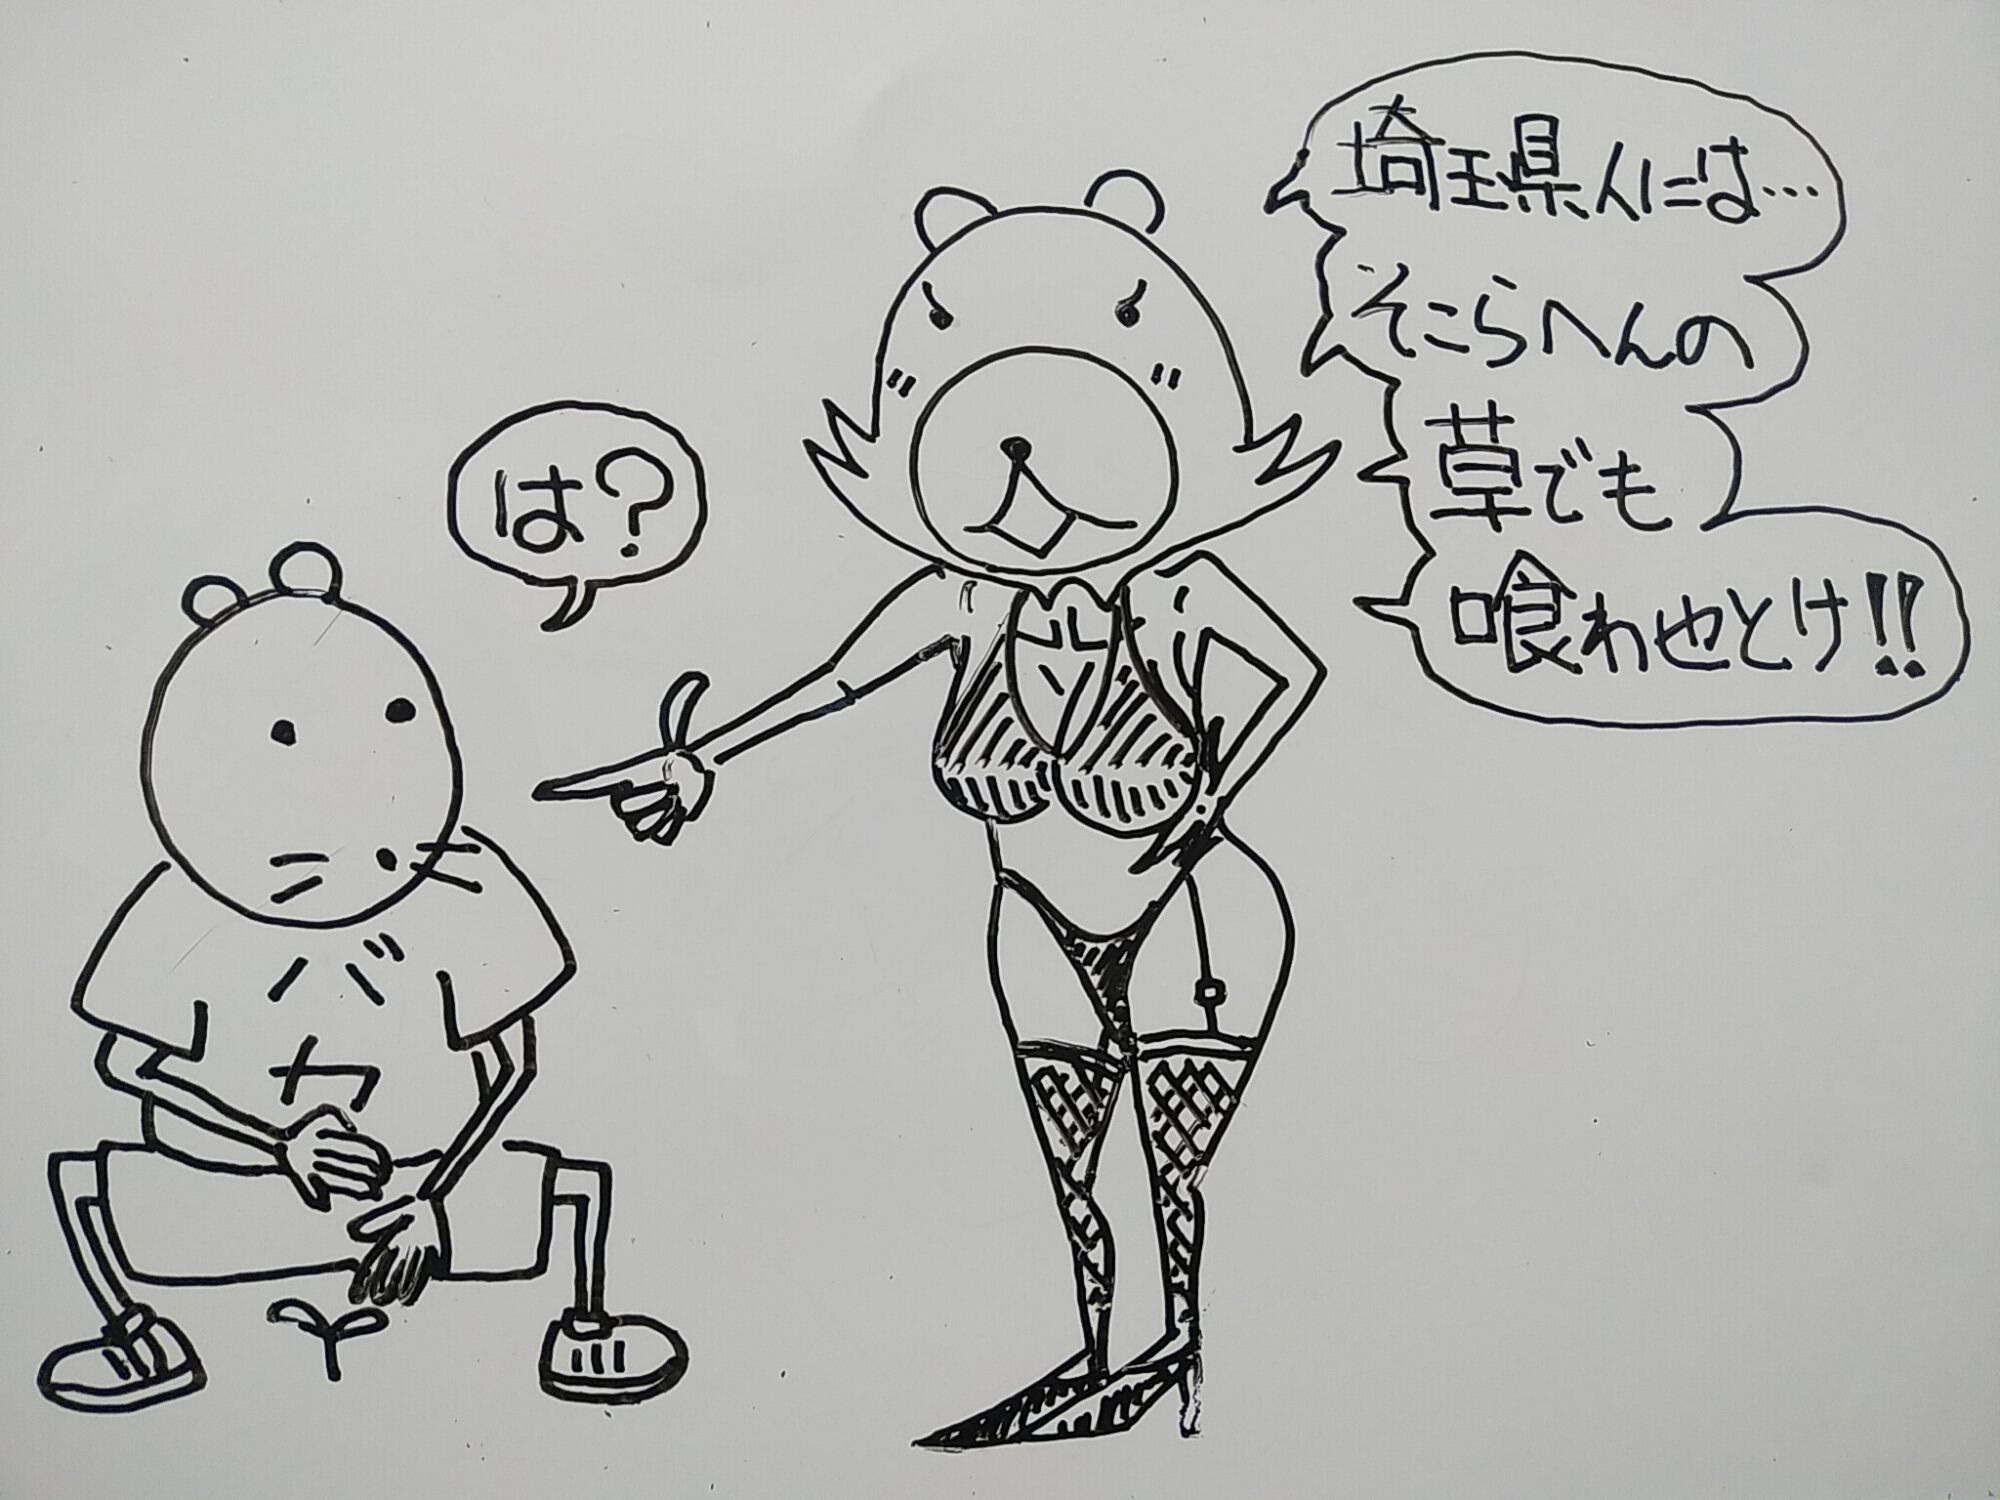 埼玉県人には…
そこらへんの
草でも
喰わせとけ!!
は?
バ
カ